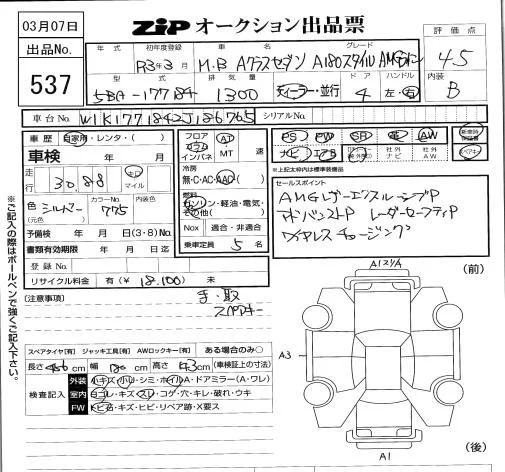 03月07日
ZIP オークション出品票
出品No.
537
評価点
4.5
内装
B
年式 初年度登録 車名 グレード
R3年3月 M.B Aクラスセダン A180スタイル AMGライン
型式 排気量 ドア ハンドル
5BA-177184 1300 ディーラー・並行 4 左・右
車台No. W1K1771842J186765 シリアルNo.
車歴 自家用・レンタ・( )
車検 年 月
走行 30.88 キロ マイル
色 シルバー カラーNo. 775 内装色
(元色)
予備検 年 月 日(3・8)No.
書類有効期限 年 月 日迄
登録No.
リサイクル料金 有(¥ 18,100) 未
フロア コラム インパネ AT MT 速
冷房 無・C・AC・AAC( )
燃料 ガソリン・軽油・電気・その他( )
Nox 適合・非適合
乗車定員 5 名
PS PW SR 革 AW 新車時保証書
ナビ エアB 社外ナビ 社外AW スペアキー
※上記太枠内は標準装備品
セールスポイント
AMGレザーエクスクルーシブP
アドバンストP レーダーセーフティP
ワイヤレスチャージング
(注意事項)
手・取
スペアキー
スペアタイヤ[有] ジャッキ工具[有] AWロックキー[有] ある場合のみ〇
長さ 456 cm 幅 180 cm 高さ 143 cm (車検証上の寸法)
検査記入
外装 小キズ・小U・シミ・ホイルA・ドアミラー(A・ワレ)
室内 ヨゴレ・キズ・スレ・コゲ・穴・キレ・破れ・ウキ
FW トビ石・キズ・ヒビ・リペア跡・X要ス
※ご記入の際はボールペンで強くご記入下さい。
A12リA
(前)
A3
A1
(後)